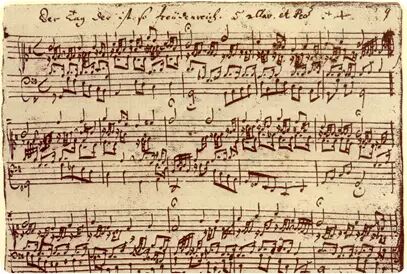 Der Tag der ist so freüdenreich. 2 Clav. et Ped